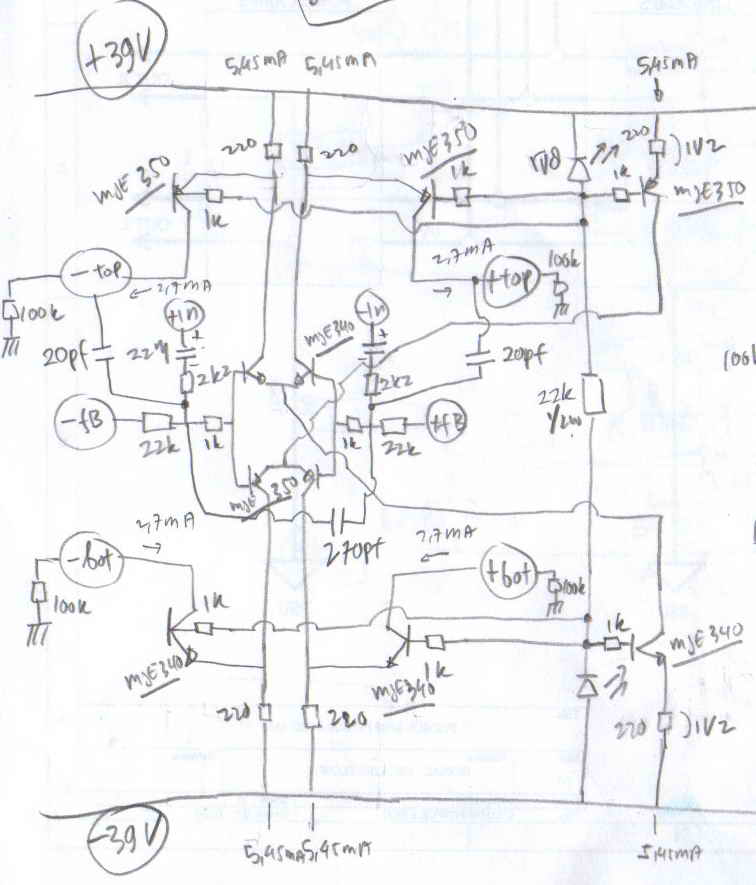 +39V
5,45mA 5,45mA 5,45mA
220 220 1V8 220 )1V2
MJE 350 MJE 350 1k 1k MJE350
1k
2,7mA 100k
-top +top
2,7mA
100k +In -In
MJE340
20pf 22µ 20pf
2k2 2k2 22k
-fB +fB
22k 1k 1k 22k
MJE 350
270pf
2,7mA 2,7mA
-bot +bot
100k 1k 100k
1k MJE340
MJE340 MJE340 1k
220 220 220 )1V2
-39V
5,45mA 5,45mA 5,45mA